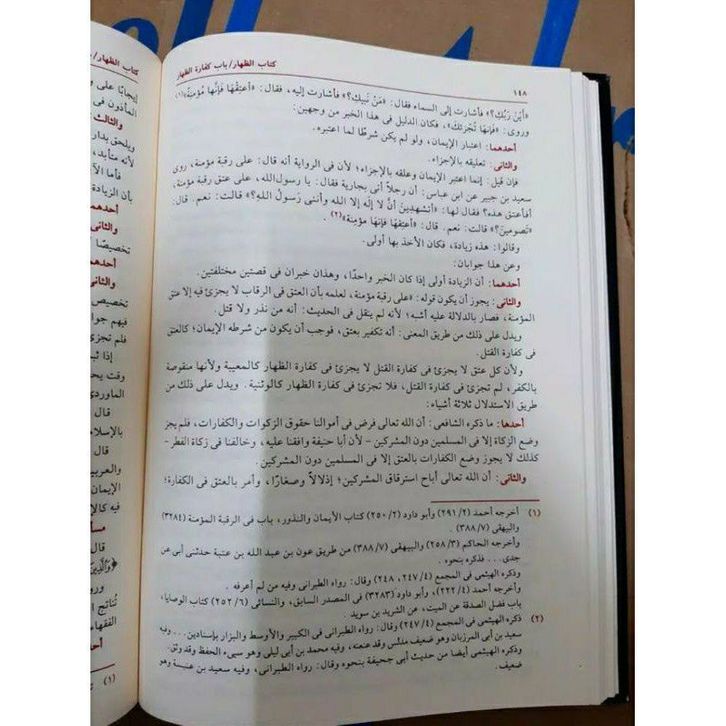 ١٤٨
كتاب الظهار/ باب كفارة الظهار
«أَيْنَ رَبُّكِ؟» فأشارت إلى السماء فقال: «مَنْ نَبِيكِ؟» فأشارت إليه، فقال: «أَعتِقْهَا فَإِنَّها مُؤْمِنَةٌ»(١)
وروى: «فَإِنهَا تُجْزِئكَ»، فكان الدليل فى هذا الخبر من وجهين:
أحدهما: اعتبار الإيمان، ولو لم يكن شرطًا لما اعتبره.
والثانى: تعليقه بالإجزاء.
فإن قيل: إنما اعتبر الإيمان وعلقه بالإجزاء؛ لأن فى الرواية أنه قال: على رقبة مؤمنة، روى
سعيد بن جبير عن ابن عباس: أن رجلاً أتى بجارية فقال: يا رسول الله، على عتق رقبة مؤمنة،
أفأعتق هذه؟ فقال لها: «أتشهدِينَ أَنْ لا إله إلا الله وأننى رَسولُ اللهِ؟» قالت: نعم. قال:
«تَصومينَ؟» قالت: نعم. قال: «أعتِقْها فَإِنهَا مؤمِنة»(٢).
وقالوا: هذه زيادة، فكان الأخذ بها أولى.
وعن هذا جوابان:
أحدهما: أن الزيادة أولى إذا كان الخبر واحدًا، وهذان خبران فى قصتين مختلفتين.
والثانى: يجوز أن يكون قوله: «على رقبة مؤمنة، لعلمه بأن العتق فى الرقاب لا يجزئ فيه إلا عتق
المؤمنة، فصار بالدلالة عليه أشبه؛ لأنه لم ينقل فى الحديث: أنه من نذر ولا قتل.
ويدل على ذلك من طريق المعنى: أنه تكفير بعتق، فوجب أن يكون من شرطه الإيمان؛ كالعتق
فى كفارة القتل.
ولأن كل عتق لا يجزئ فى كفارة القتل لا يجزئ فى كفارة الظهار كالمعيبة ولأنها منقوصة
بالكفر، لم تجزئ فى كفارة القتل، فلا تجزئ فى كفارة الظهار كالوثنية. ويدل على ذلك من
طريق الاستدلال ثلاثة أشياء:
أحدها: ما ذكره الشافعى: أن الله تعالى فرض فى أموالنا حقوق الزكوات والكفارات، فلم يجز
وضع الزكاة إلا فى المسلمين دون المشركين - لأن أبا حنيفة وافقنا عليه، وخالفنا فى زكاة الفطر -
كذلك لا يجوز وضع الكفارات بالعتق إلا فى المسلمين دون المشركين.
والثانى: أن الله تعالى أباح استرقاق المشركين؛ إذلالاً وصغارًا، وأمر بالعتق فى الكفارة؛
(١) أخرجه أحمد (٢/ ٢٩١) وأبو داود (٢/ ٢٥٠) كتاب الأيمان والنذور، باب فى الرقبة المؤمنة (٣٢٨٤)
والبيهقى (٧/ ٣٨٨).
وأخرجه الحاكم (٣/ ٢٥٨) والبيهقى (٧/ ٣٨٨) من طريق عون بن عبد الله بن عتبة حدثنى أبى عن
جدى... فذكره بنحوه.
وذكره الهيثمى فى المجمع (٤/ ٢٤٧، ٢٤٨) وقال: رواه الطبرانى وفيه من لم أعرفه.
وأخرجه أحمد (٤/ ٢٢٢)، وأبو داود (٣٢٨٣) فى المصدر السابق، والنسائى (٦/ ٢٥٢) كتاب الوصايا،
باب فضل الصدقة عن الميت، عن الشريد بن سويد
(٢) ذكره الهيثمى فى المجمع (٤/ ٢٤٧) وقال: رواه الطبرانى فى الكبير والأوسط والبزار بإسنادين... وفيه
سعيد بن أبى المرزبان وهو ضعيف مدلس وقد عنعنه، وفيه محمد بن أبى ليلى وهو سيىء الحفظ وقد وثق.
وذكره الهيثمى أيضا من حديث أبى جحيفة بنحوه وقال: رواه الطبرانى، وفيه سعيد بن عنبسة وهو
ضعيف.
كتاب الظهار/
إيجابًا على
المأذون فى
والثالث
ويلحق بدار
لأنه متأبد،
فأما الآ
بأن الزيادة
أحدهما
والثانى
تخصيصًا
أحدهما
والثانى
تخصيص
فيهم جوا
فلم تجزئ
إذا ثب
وقت يحـ
الماوردى
قال
بالإسلام
قال
والعربية
الإيمان
فيه كالإ
مسأ
قال
﴿وَالَّذِينَ
وروو
تُنَائج ا
الفقهاء
أحد
(١)